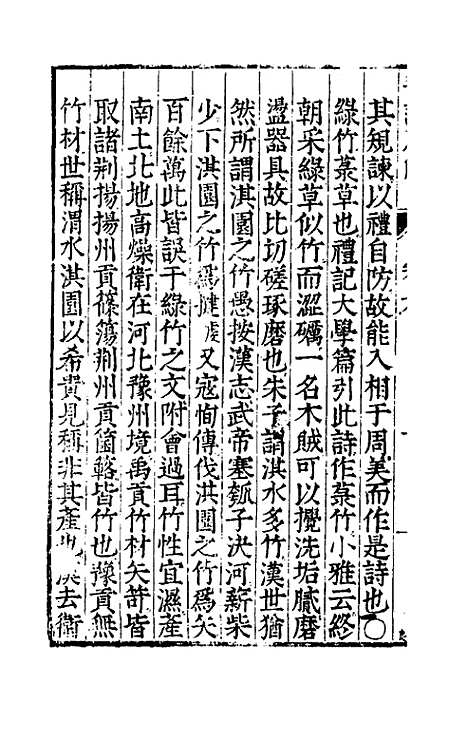 其規諫以禮自防故能入相于周美而作是詩也〇
綠竹菉草也禮記大學篇引此詩作菉竹小雅云終
朝采綠草似竹而澀礪一名木賊可以攪洗垢膩磨
盪器具故比切磋琢磨也朱子謂淇水多竹漢世猶
然所謂淇園之竹愚按漢志武帝塞瓠子決河薪柴
少下淇園之竹爲揵又寇恂傳伐淇園之竹爲矢
百餘萬此皆誤于綠竹之文附會過耳竹性宜濕產
南土北地高燥衛在河北豫州境禹貢竹材矢笴皆
取諸荆揚揚州貢篠簜荆州貢箘簵皆竹也豫貢無
竹材世稱渭水淇園以希貴見稱非其產也淇去衛